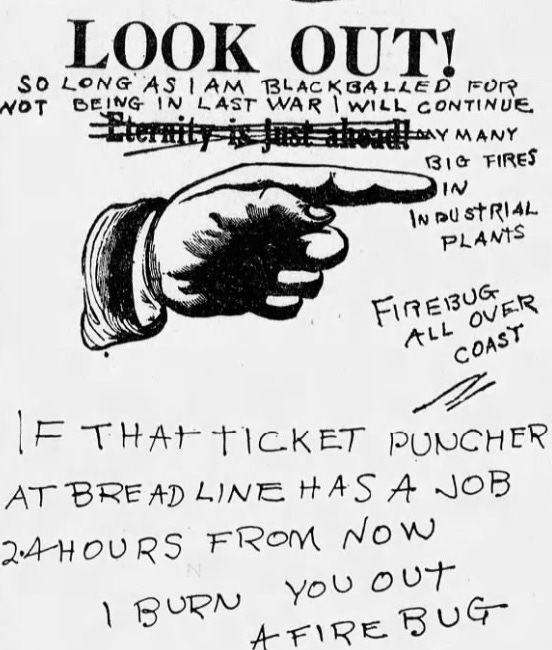 LOOK OUT!
SO LONG AS I AM BLACKBALLED FOR
NOT BEING IN LAST WAR I WILL CONTINUE
Eternity is just ahead! MY MANY
BIG FIRES
IN
INDUSTRIAL
PLANTS
FIREBUG
ALL OVER
COAST
IF THAT TICKET PUNCHER
AT BREADLINE HAS A JOB
24 HOURS FROM NOW
I BURN YOU OUT
A FIRE BUG